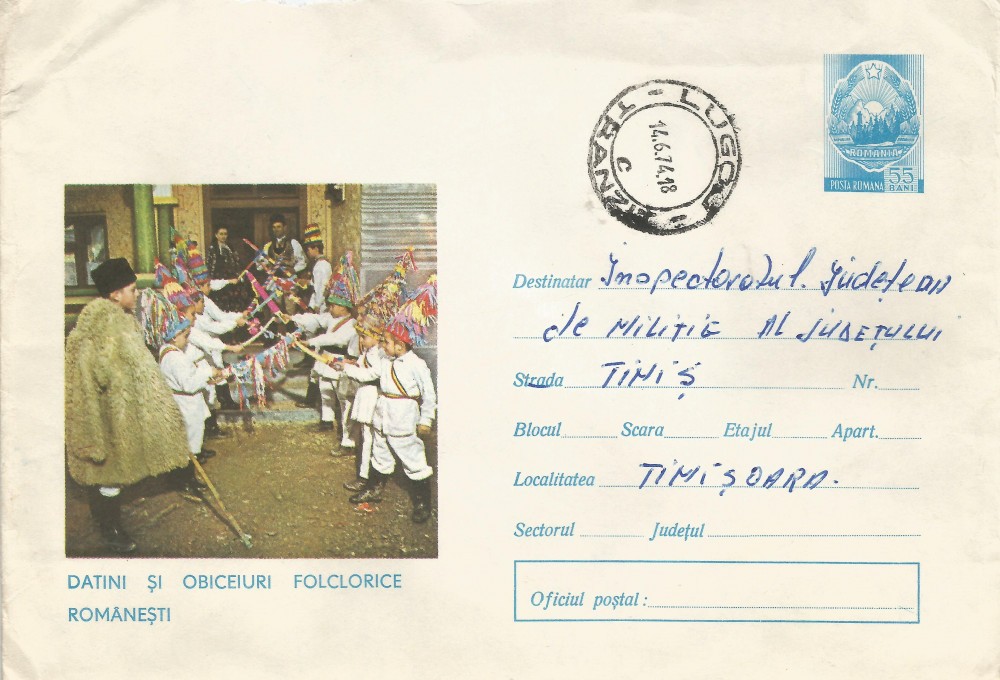 LUGOJ
TRANZIT
C
14.6.74.18
ROMANIA
POSTA ROMANA 55 BANI
Destinatar Inspectoratul. Județean
de MILIȚIE AL JUDEȚULUI
Strada TIMIȘ Nr.
Blocul Scara Etajul Apart.
Localitatea TIMIȘOARA.
Sectorul Județul
Oficiul poștal:
DATINI ȘI OBICEIURI FOLCLORICE
ROMÂNEȘTI